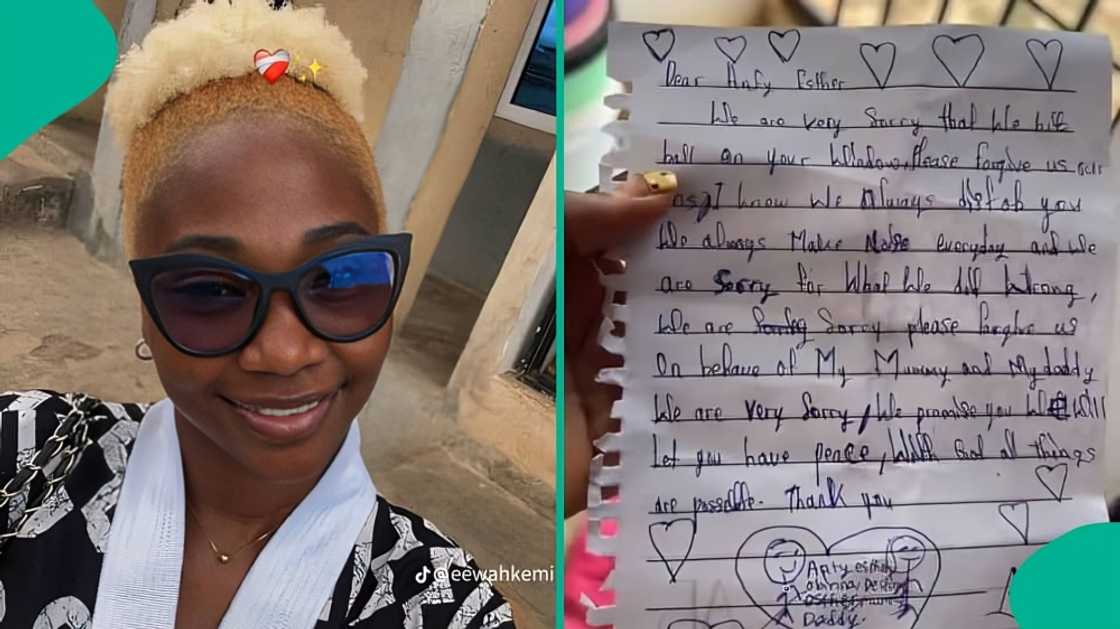 @eewahkemi
Dear Anty Esther
We are very Sorry that We hit
ball on your Window, Please forgive us
I know We Always distob you
We always Make Noise everyday and We
are Sorry for What We did Wrong,
We are Sorry please forgive us
On behave of My Mummy and My daddy
We are very Sorry, We promise you We will
Let you have peace, With God all things
are possible. Thank you
Anty esther
Daddy.